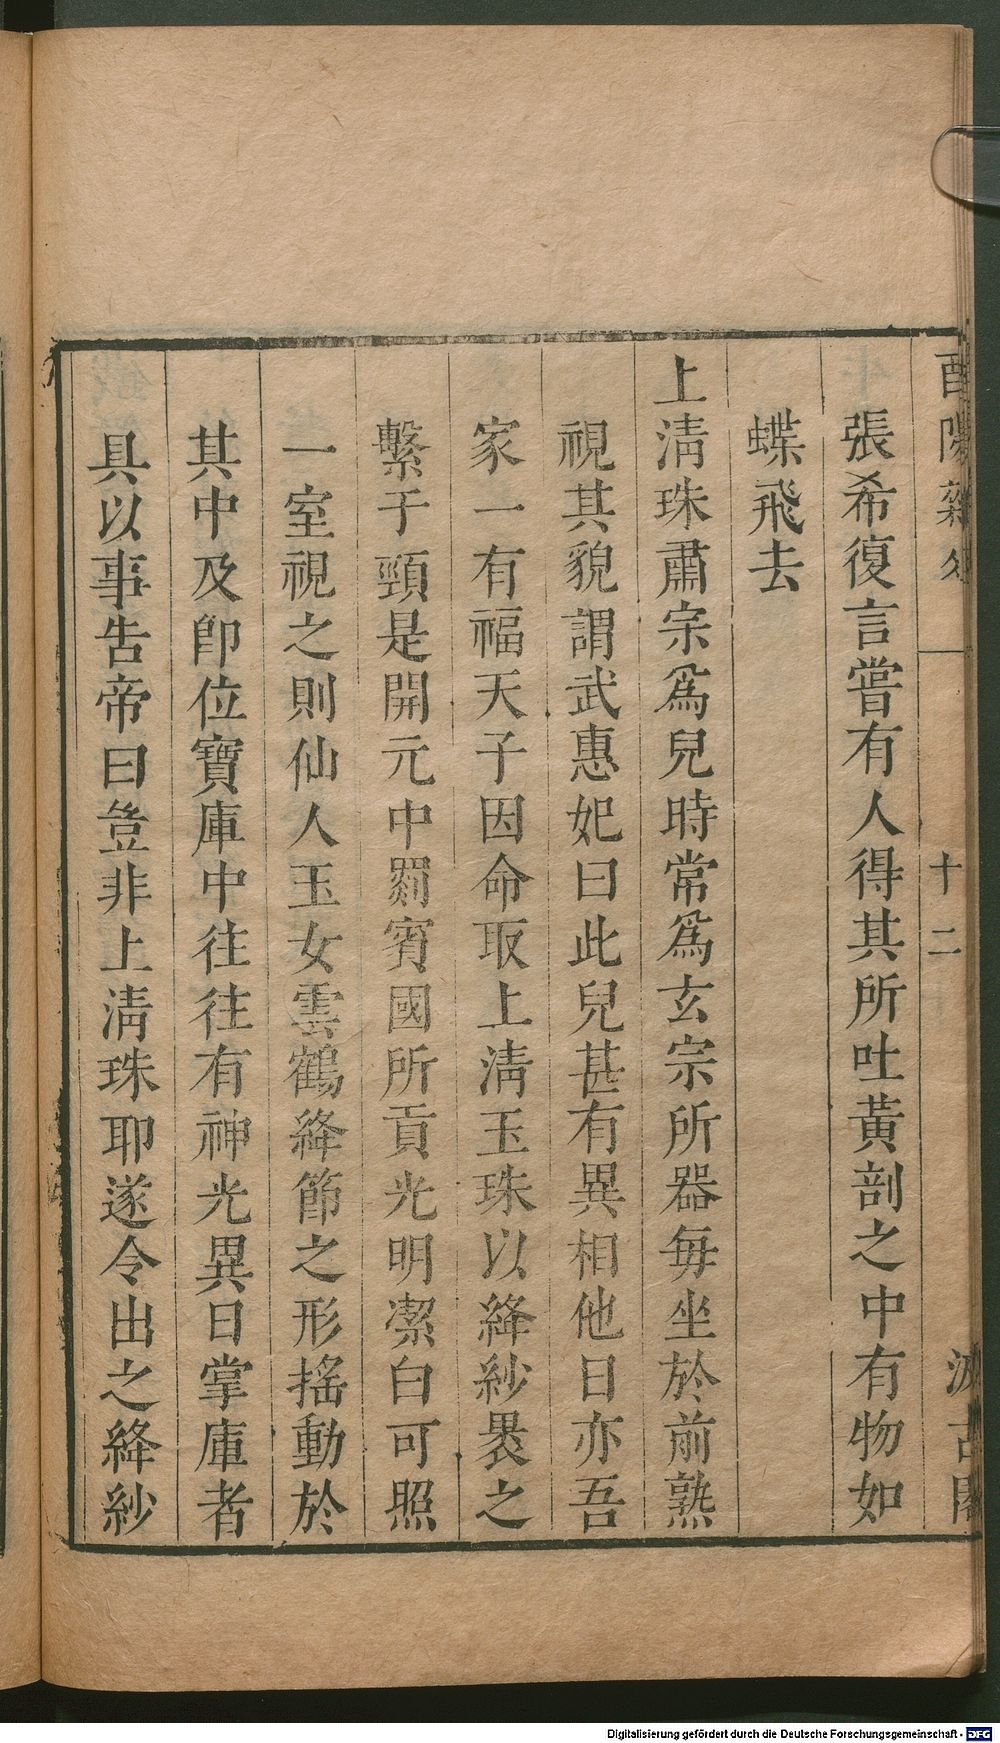 酉陽雜俎
十二
汲古閣
張希復言嘗有人得其所吐黃剖之中有物如
蝶飛去
上淸珠肅宗爲兒時常爲玄宗所器每坐於前熟
視其貌謂武惠妃曰此兒甚有異相他日亦吾
家一有福天子因命取上淸玉珠以絳紗裹之
繫于頸是開元中罽賓國所貢光明潔白可照
一室視之則仙人玉女雲鶴絳節之形搖動於
其中及卽位寶庫中往往有神光異日掌庫者
具以事告帝曰豈非上淸珠耶遂令出之絳紗
Digitalisierung gefördert durch die Deutsche Forschungsgemeinschaft - DFG